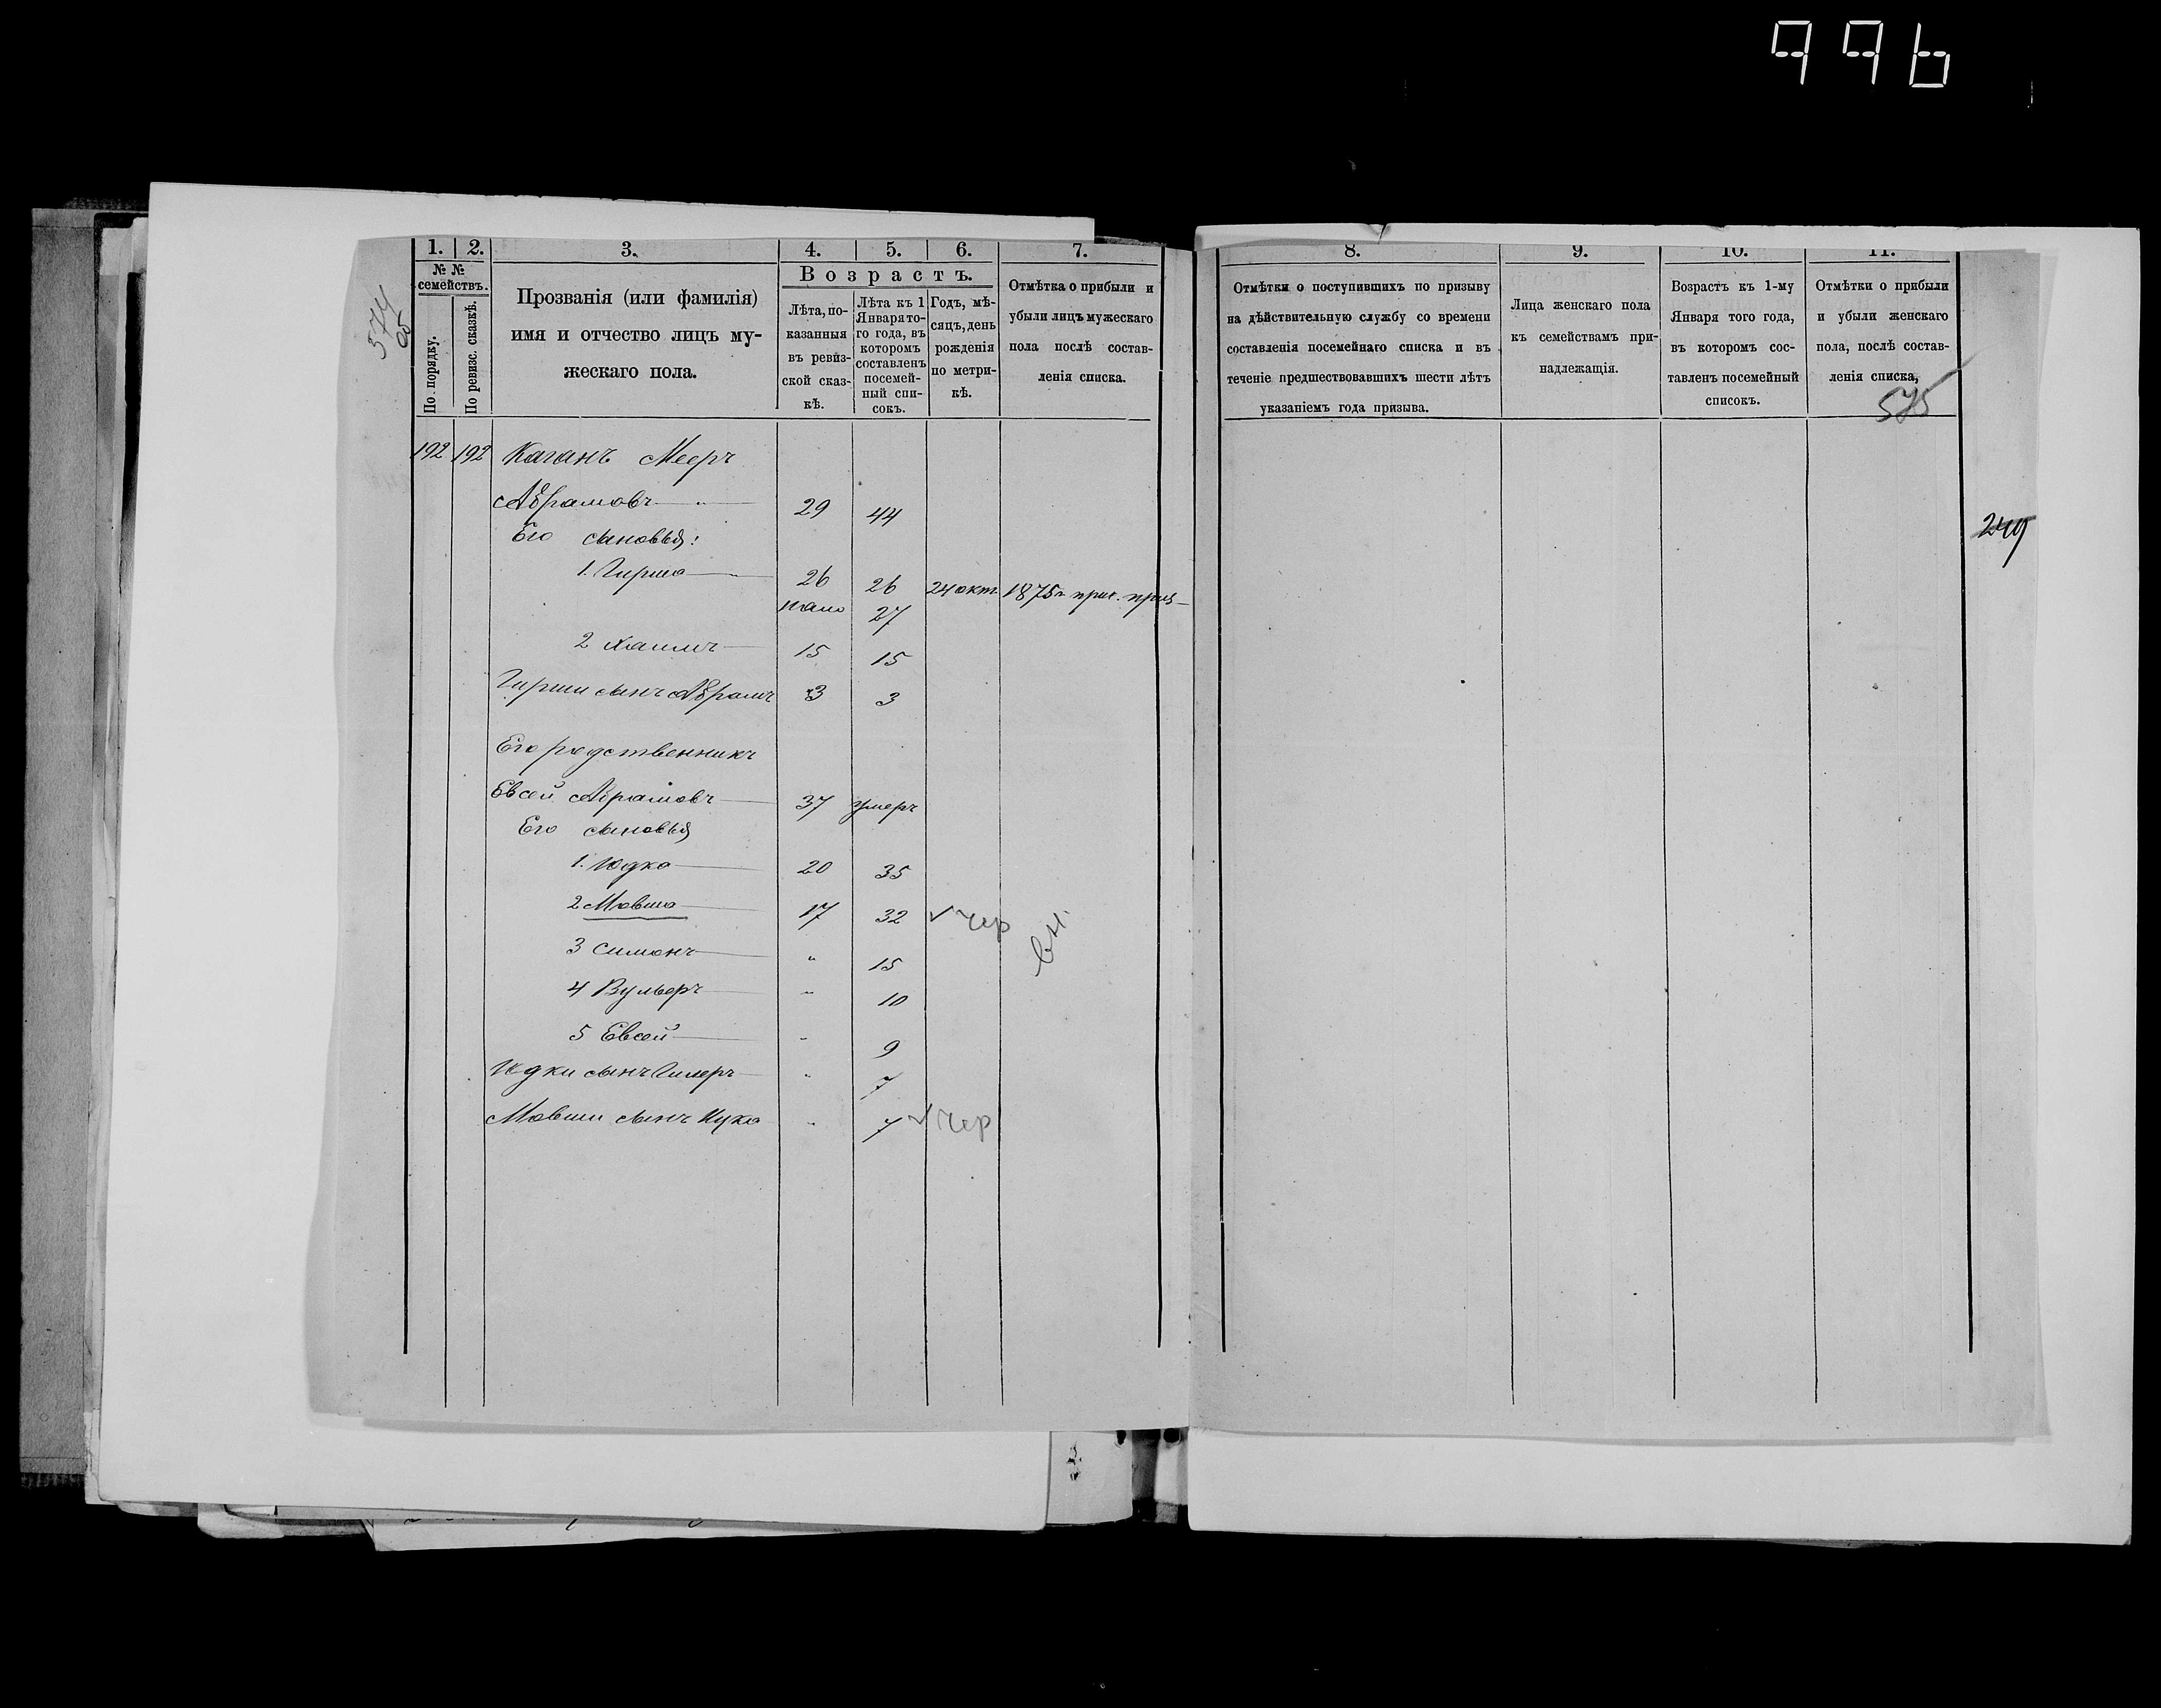 996
574
об
1. 2. 3. 4. 5. 6. 7.
№ №
семействъ.
По порядку.
По ревизс. сказкѣ.
Прозванія (или фамилія)
имя и отчество лицъ му-
жескаго пола.
Возрастъ.
Лѣта, по-
казанныя
въ ревиз-
ской сказ-
кѣ.
Лѣта къ 1
Января то-
го года, въ
которомъ
составленъ
посемей-
ный спи-
сокъ.
Годъ, мѣ-
сяцъ, день
рожденія
по метри-
кѣ.
Отмѣтка о прибыли и
убыли лицъ мужескаго
пола послѣ состав-
ленія списка.
192 192 Каганъ Мееръ
Абрамовъ 29 44
Его сыновья:
1. Гирша 26 26 24 окт. 1875 г.
27
2 Хаимъ 15 15
Гирши сынъ Абрамъ 3 3
Его родственникъ
Евсей Абрамовъ 37 умеръ
Его сыновья
1. Юдка 20 35
2 Мовша 17 32 √ чер
3 Симонъ " 15
4 Вульфъ " 10
5 Евсей " 9
Юдки сынъ " 7
Мовши сынъ Ицка " 7 √ чер
8. 9. 10. 11.
Отмѣтки о поступившихъ по призыву
на дѣйствительную службу со времени
составленія посемейнаго списка и въ
теченіе предшествовавшихъ шести лѣтъ
указаніемъ года призыва.
Лица женскаго пола
къ семействамъ при-
надлежащія.
Возрастъ къ 1-му
Января того года,
въ которомъ сос-
тавленъ посемейный
списокъ.
Отмѣтки о прибыли
и убыли женскаго
пола, послѣ состав-
ленія списка,
575
249